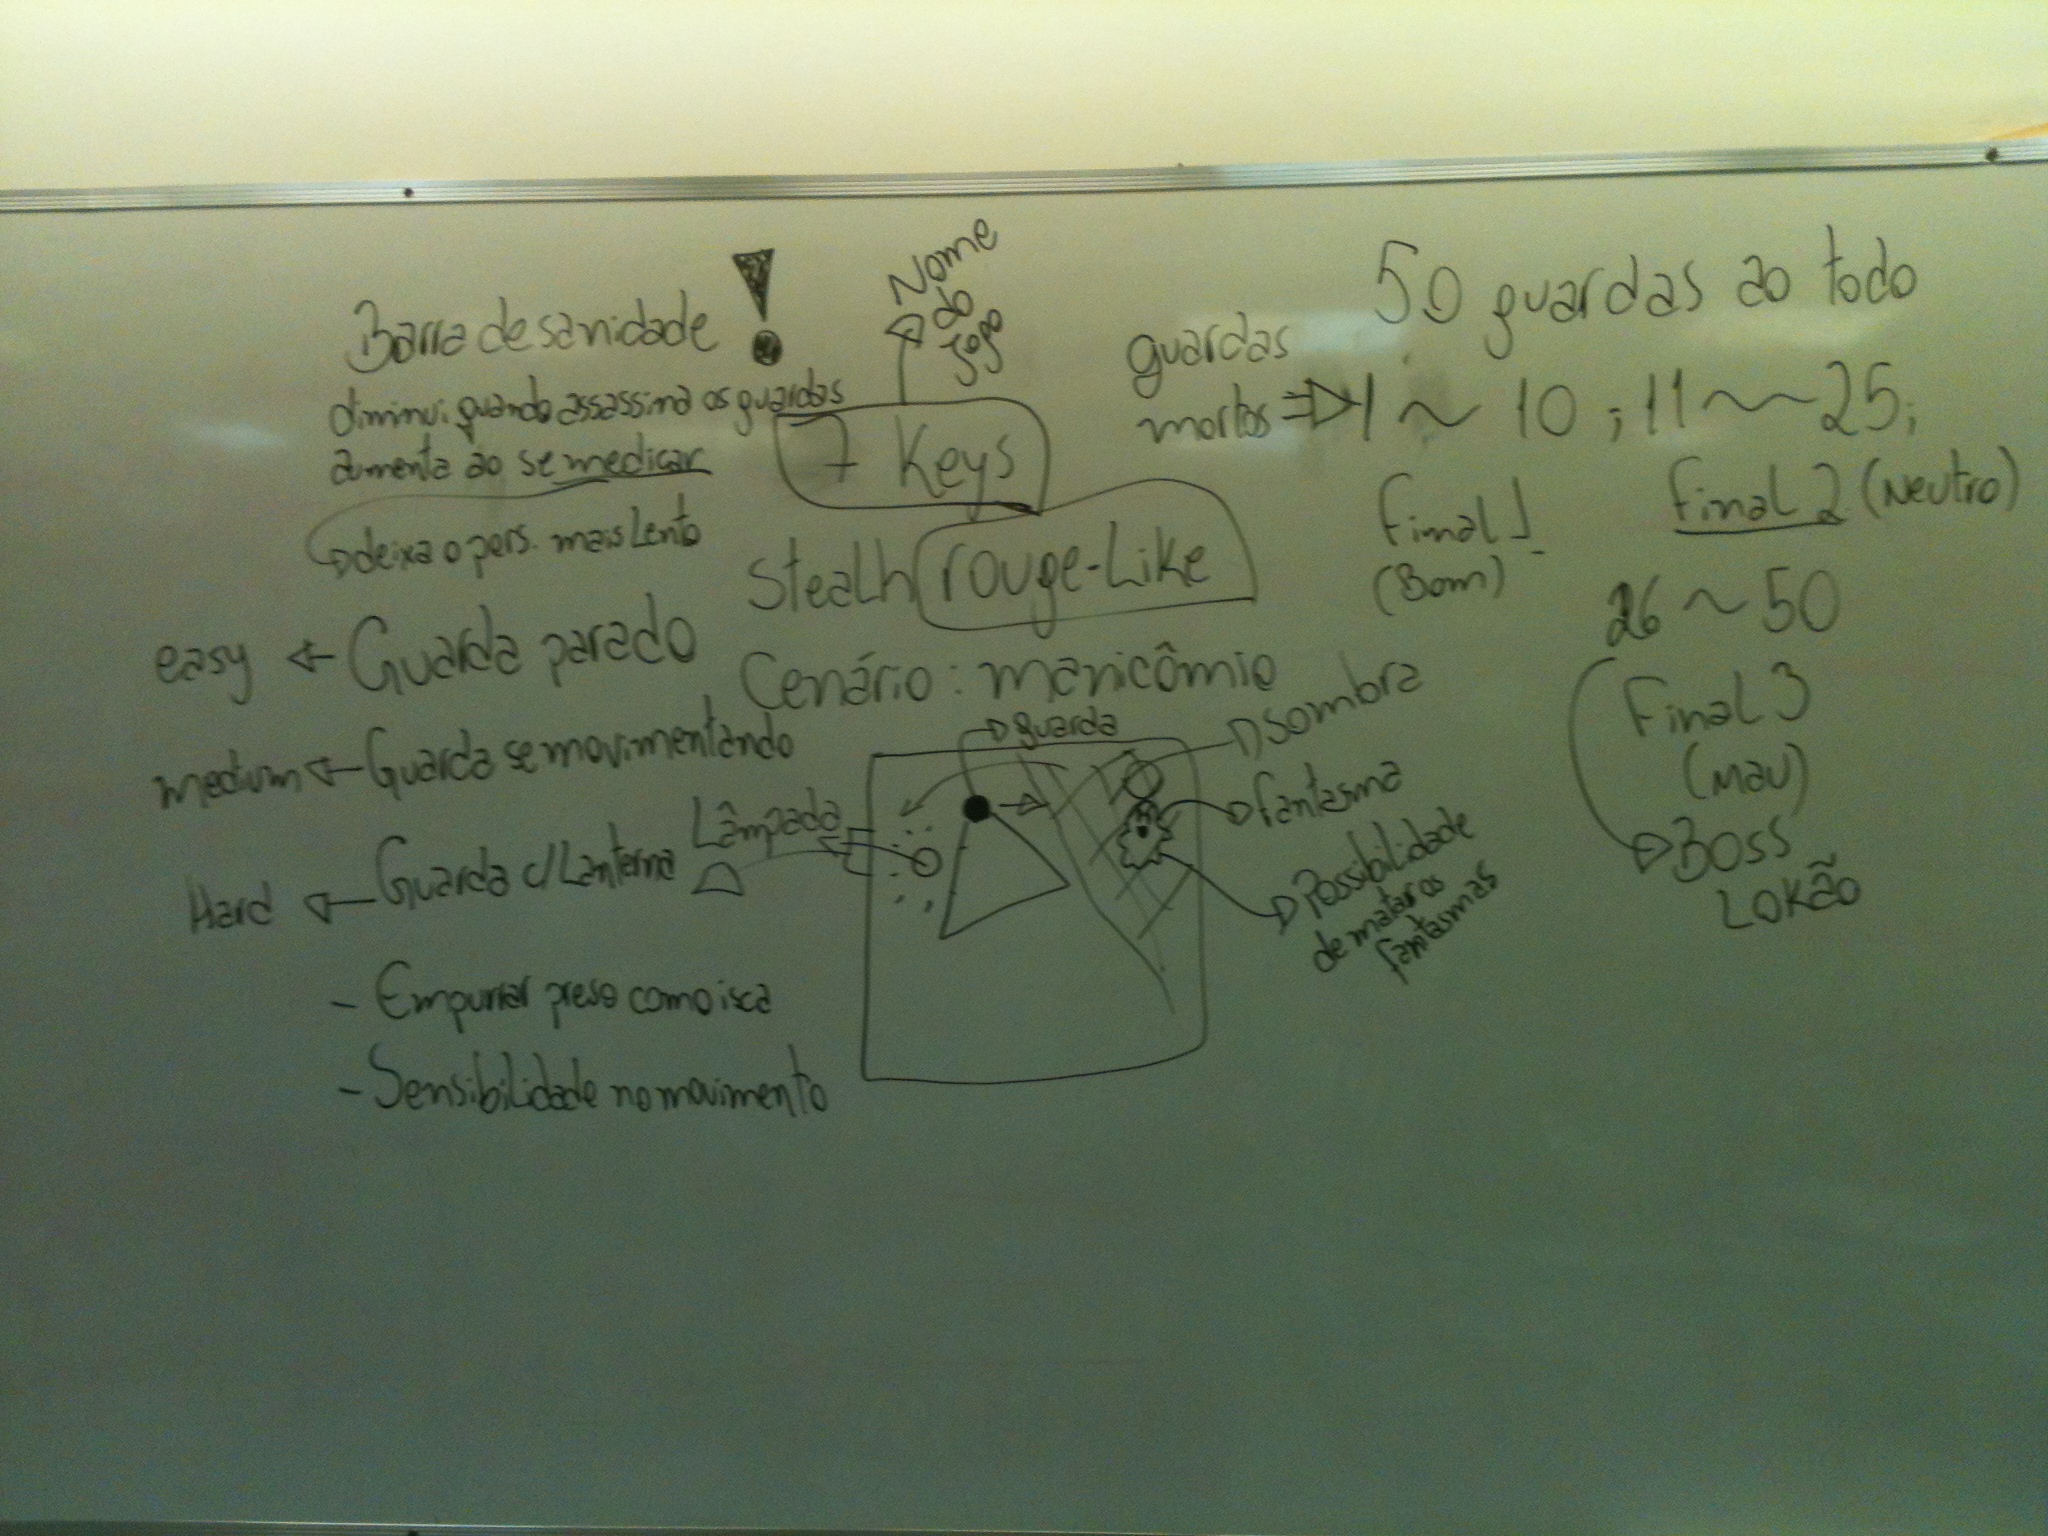 Barra de sanidade !
diminui quando assassina os guardas
aumenta ao se medicar
deixa o pers. mais Lento
easy ← Guarda parado
medium ← Guarda se movimentando
Hard ← Guarda c/ Lanterna
- Empurrar preso como isca
- Sensibilidade no movimento
Nome
do
jogo
7 Keys
Stealh rouge-Like
Cenário: manicômio
guarda
Lâmpada
sombra
fantasma
Possibilidade
de matar os
fantasmas
50 guardas ao todo
guardas
mortos ⇒ 1 ~ 10 ; 11 ~ 25;
final 1
(Bom)
final 2 (Neutro)
26 ~ 50
Final 3
(Mau)
Boss
LOKão